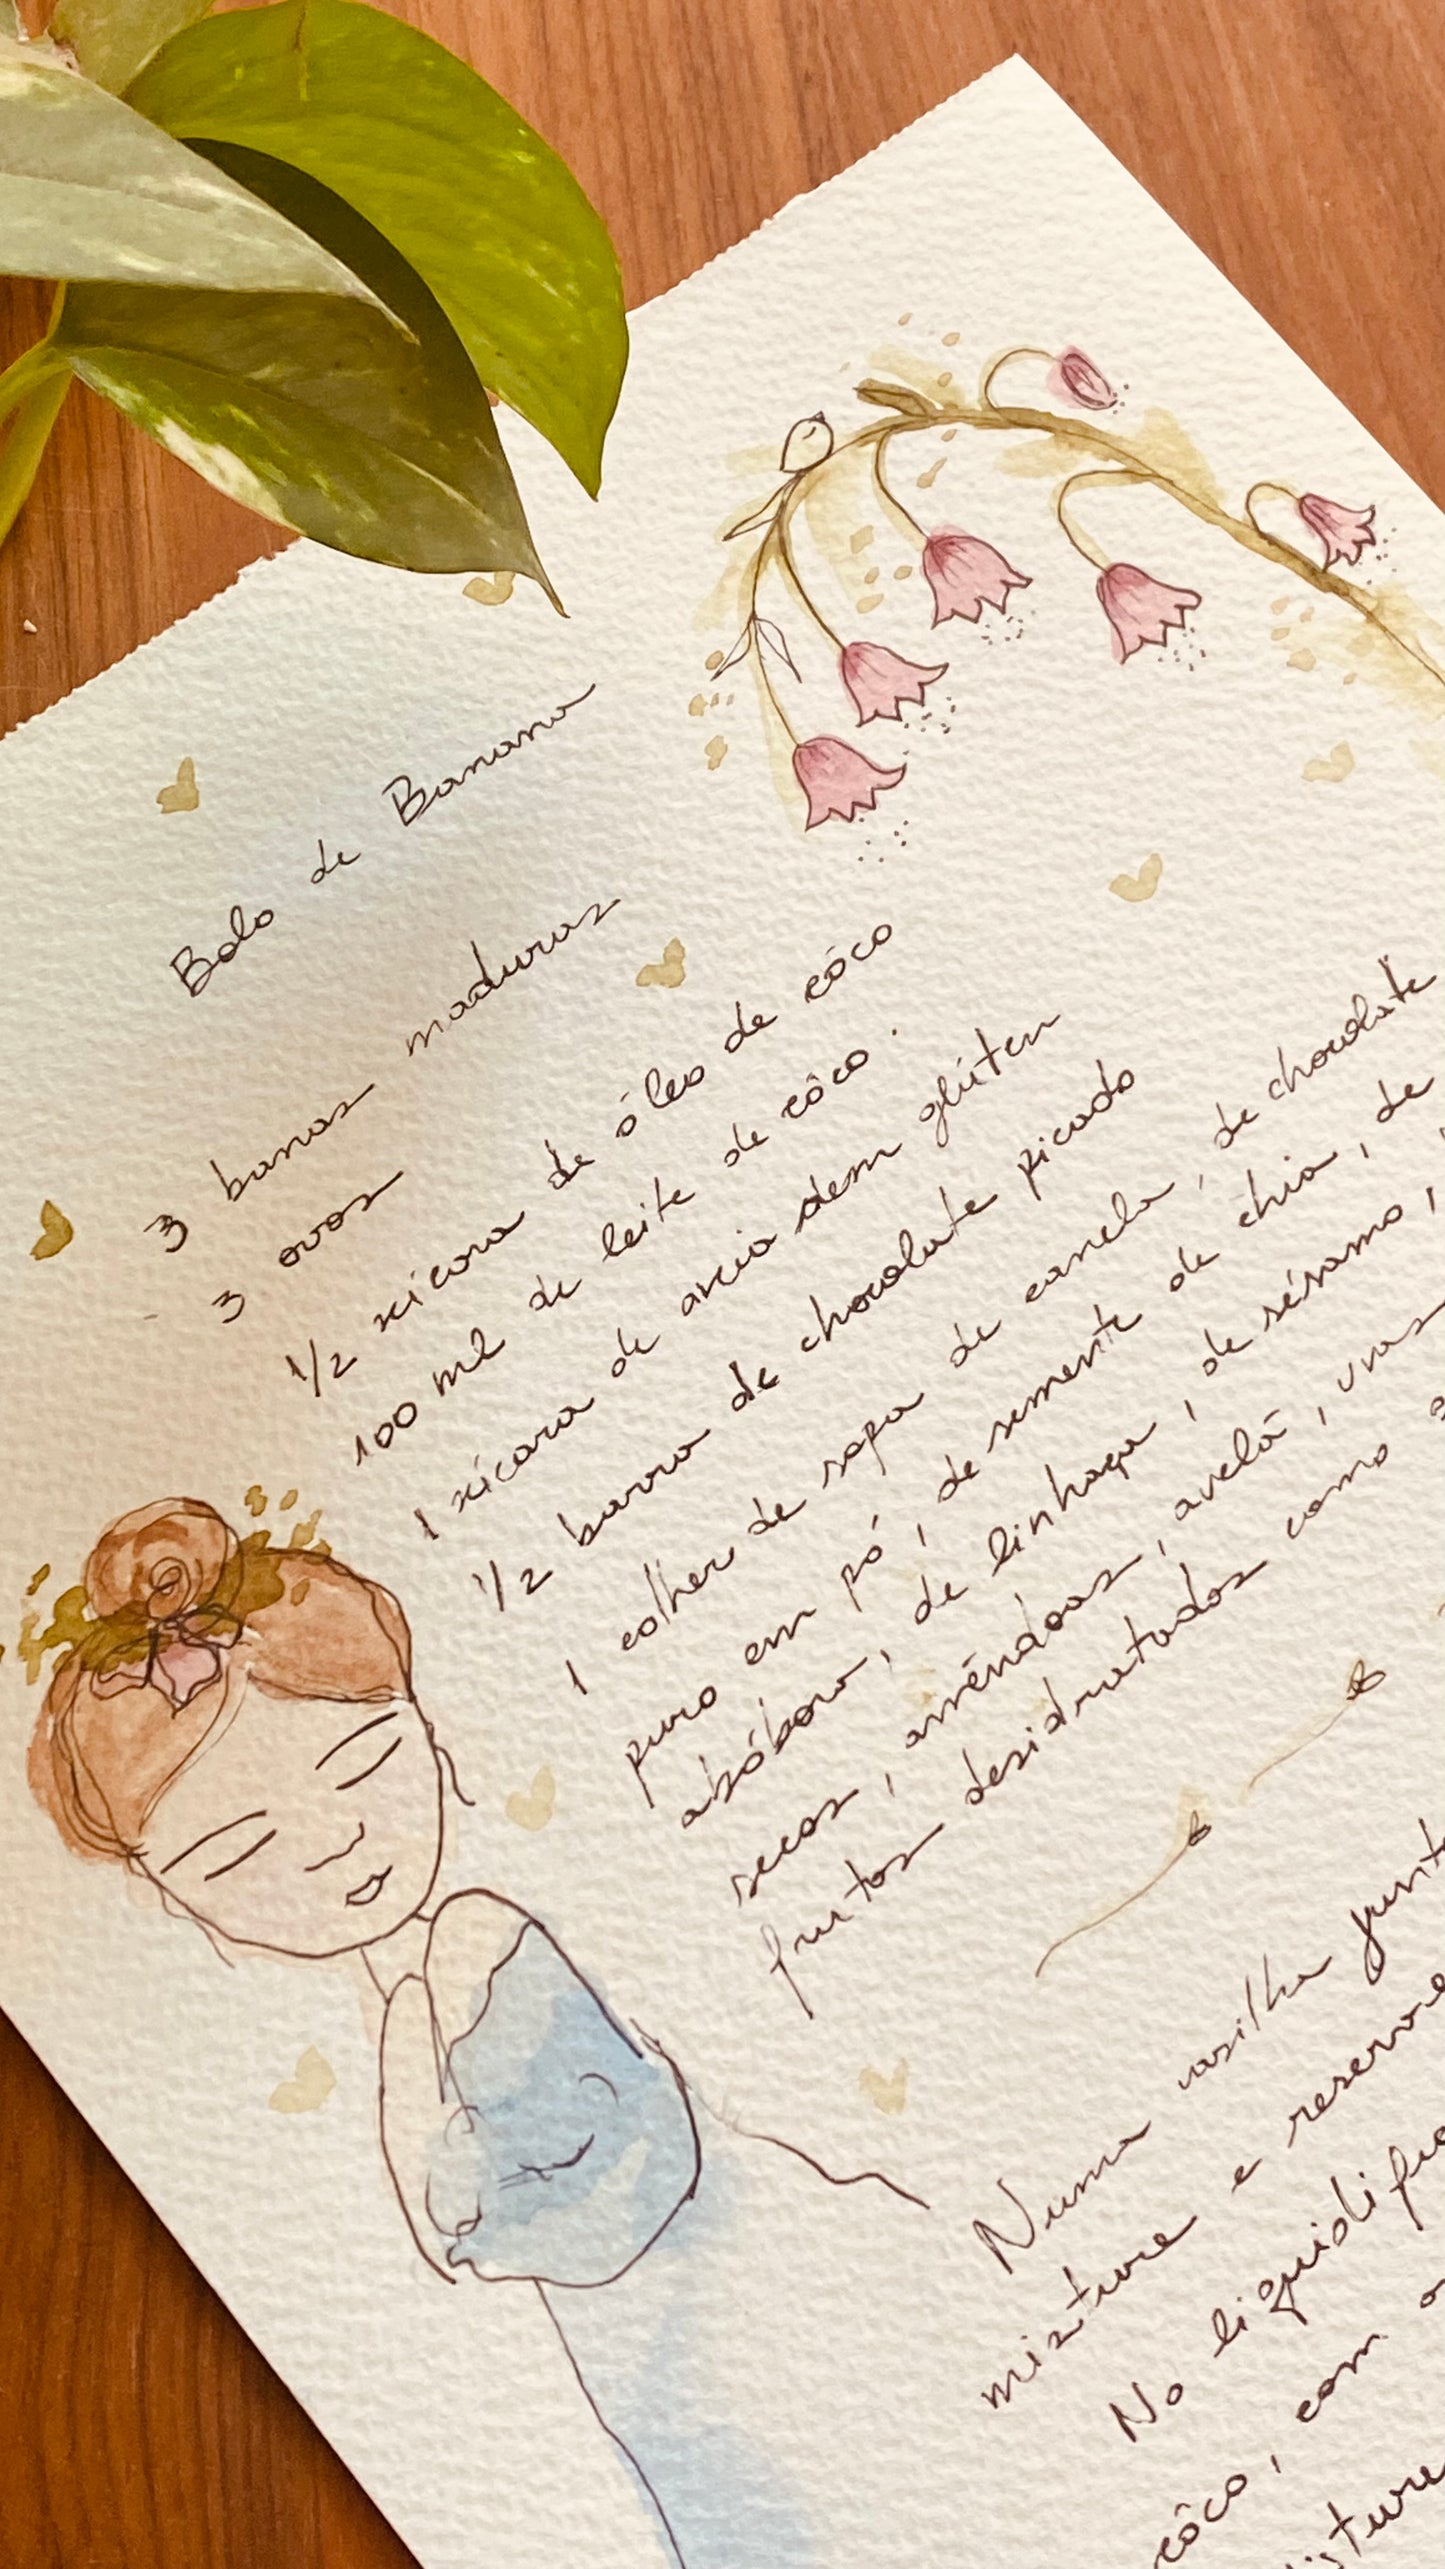 Bolo de Banana
3 banas maduras
3 ovos
1/2 xícara de óleo de côco
100 ml de leite de côco.
1 xícara de aveia sem glúten
1/2 barra de chocolate picado
1 colher de sopa de canela, de chocolate
puro em pó, de semente de chia, de
abóbora, de linhaça, de sésamo,
secos, amêndoas, avelã, uvas
frutos desidratados como
Numa vasilha
misture e reserve
No
côco, com